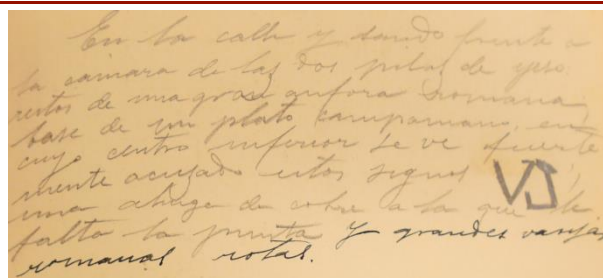 En la calle y dando frente a
la cámara de las dos pilas de yeso:
restos de una gran ánfora romana,
base de un plato campaniano, en
cuyo centro inferior se ve fuerte
mente acusado estos signos VS,
una abuge de cobre a la que le
falta la punta y grandes vasijas
romanas rotas.